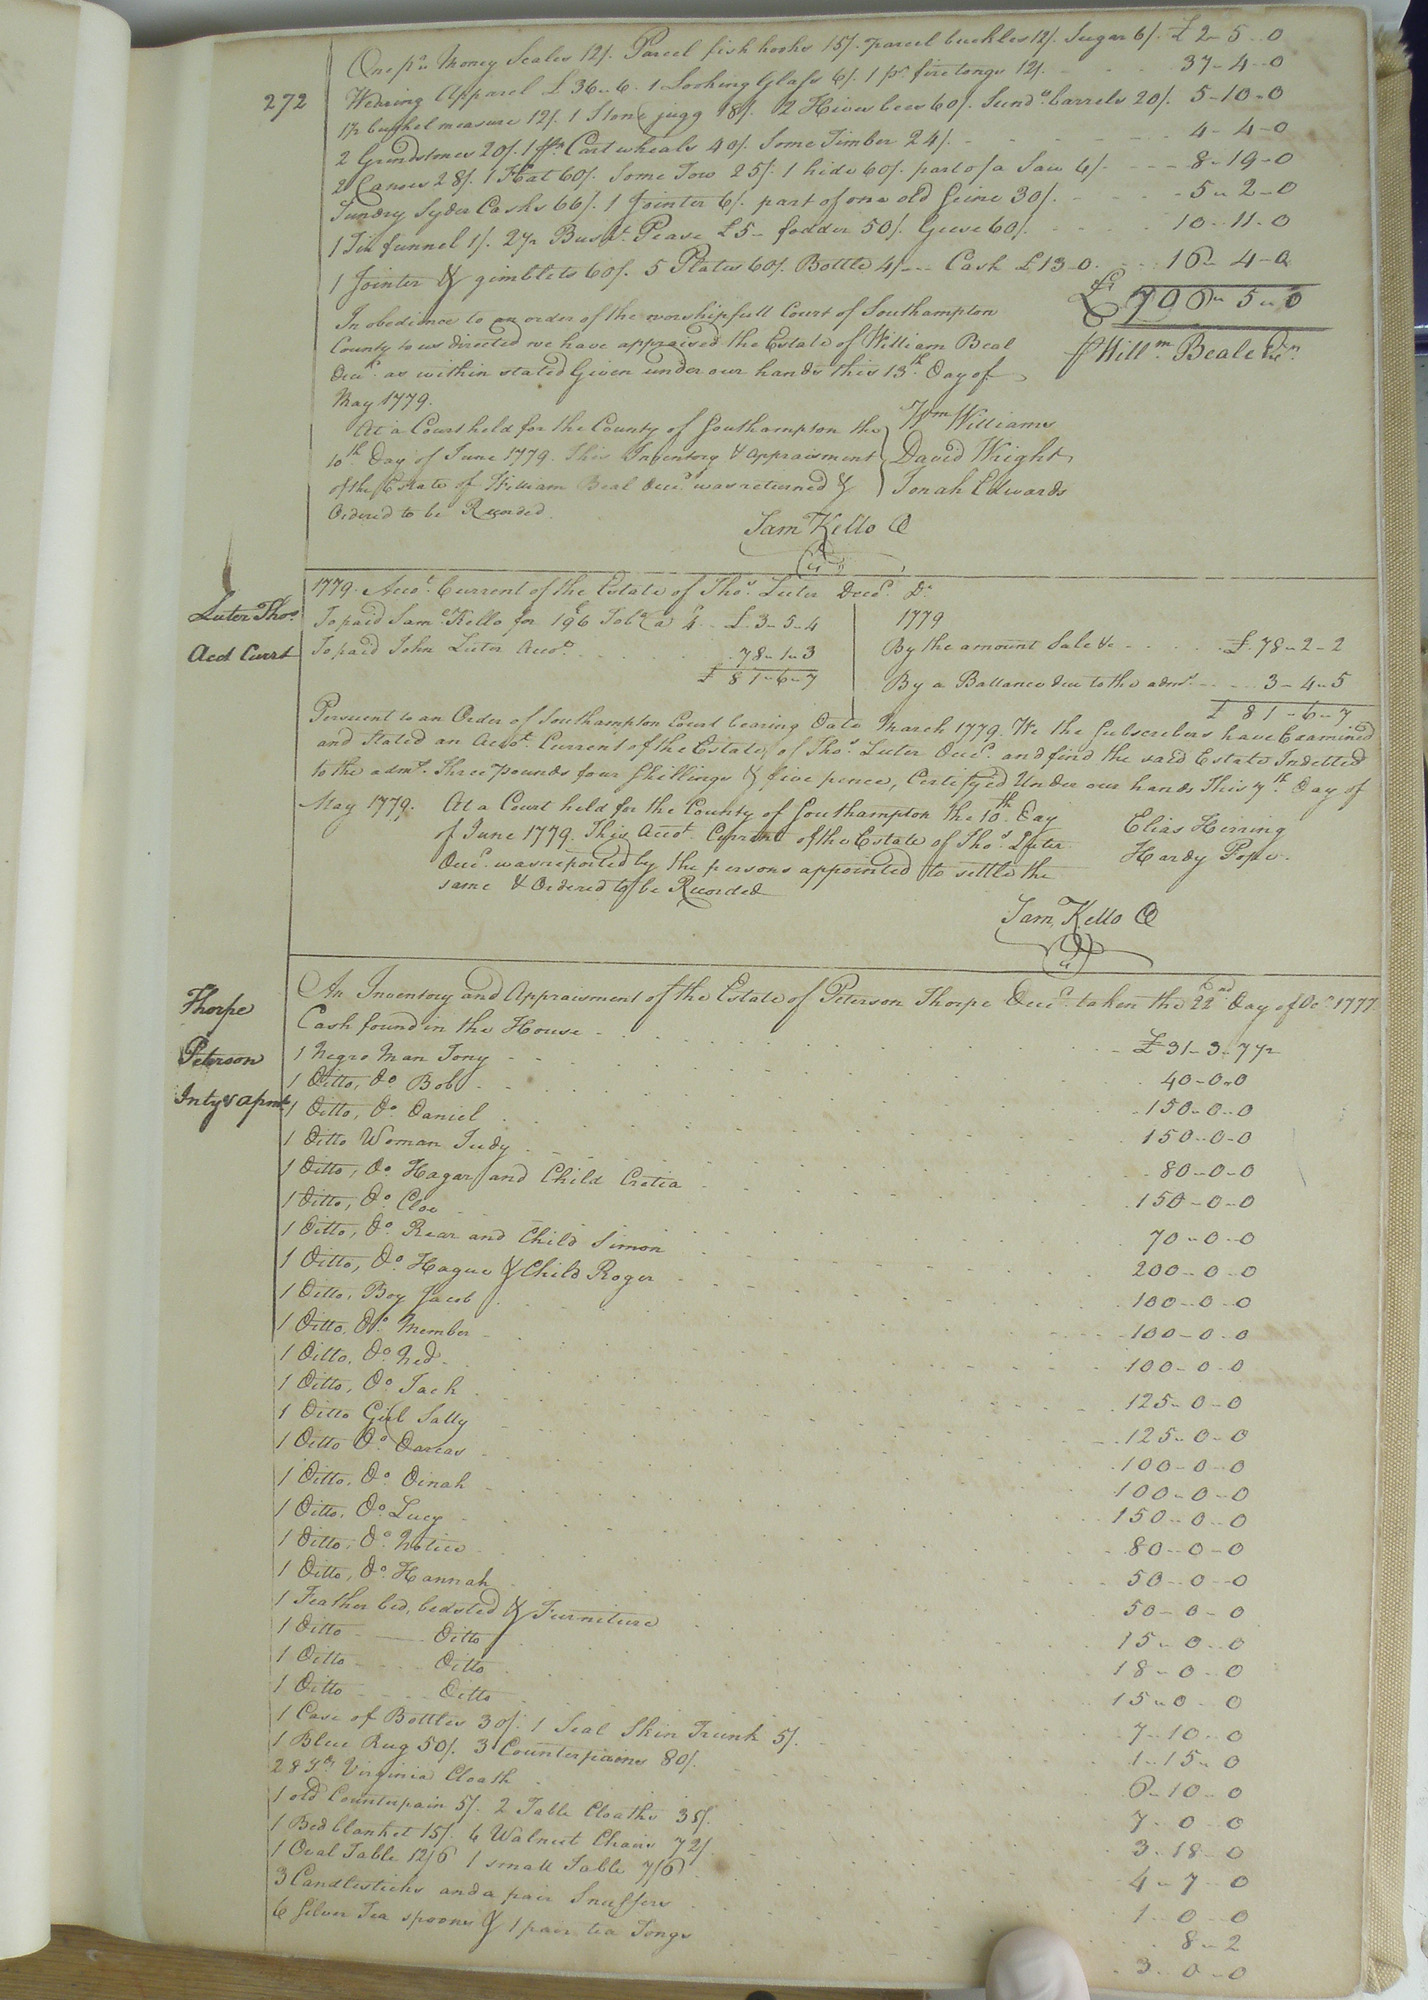 272
One pr. Money Scales 12/. Parcel fish hooks 15/. parcel buckles 12/. Sugar 6/. £ 2-5-0
Wearing Apparel £ 36-6. 1 Looking Glass 6/. 1 pr. fire tongs 12/. 37-4-0
1/2 bushel measure 12/. 1 Stone jugg 18/. 2 Hives bees 60/. Sunds. barrels 20/. 5-10-0
2 Grindstones 20/. 1 pr. Cart wheals 40/. Some Timber 24/. 4-4-0
2 Canoes 28/. 1 Flat 60/. Some Tow 25/. 1 hide 60/. part of a Saw 6/. 8-19-0
Sundry Syder Casks 66/. 1 Jointer 6/. part of one old Seine 30/. 5-2-0
1 Tin funnel 1/. 2 1/2 Bushs. Pease £5- fodder 50/. Geese 60/. 10-11-0
1 Jointer & gimblets 60/. 5 Plates 60/. Bottle 4/ Cash £13-0. 16-4-0
£ 706-5-0
In obedience to an order of the worshipfull Court of Southampton
County to us directed we have appraised the Estate of William Beal
Decd. as within stated Given under our hands this 13th. Day of
May 1779.
Willm. Beale
Wm Williams
David Wright
Jonah Edwards
At a Court held for the County of Southampton the
10th. Day of June 1779. This Inventory & Appraisment
of the Estate of William Beal Decd. was returned &
Ordered to be Recorded.
Sam Kello C
Luter Thos.
Acct Currt
1779. Accot. Current of the Estate of Thos. Luter Decd. Dr.
To paid Saml. Kello for 196 Tobo. a 4 £ 3-5-4
To paid John Luter Accot. 78-1-3
£ 81-6-7
1779
By the amount Sale &c £ 78-2-2
By a Ballance due to the admr. 3-4-5
£ 81-6-7
Persuent to an Order of Southampton Court bearing Date March 1779. We the Subscribers have Examined
and Stated an Accot. Current of the Estate of Thos. Luter Decd. and find the said Estate Indetted
to the admr. Three pounds four Shillings & five pence, Certifyed Under our hands This 7th. Day of
May 1779.
At a Court held for the County of Southampton the 10th. Day
of June 1779. This Accot. Current of the Estate of Thos. Luter
Decd. was reported by the persons appointed to settle the
same & Ordered to be Recorded
Elias Herring
Hardy Pope.
Sam Kello C
Thorpe
Peterson
Inty & apmt
An Inventory and Appraisment of the Estate of Peterson Thorpe Decd. taken the 22nd Day of Dec. 1777
Cash found in the House £ 31-3-7 1/2
1 Negro Man Tony 40-0-0
1 Ditto, Do. Bob 150-0-0
1 Ditto, Do. Daniel 150-0-0
1 Ditto Woman Judy 80-0-0
1 Ditto, Do. Hagar and Child Cretia 150-0-0
1 Ditto, Do. Cloe 70-0-0
1 Ditto, Do. Rear and Child Simon 200-0-0
1 Ditto, Do. Hague & Child Roger 100-0-0
1 Ditto, Boy Jacob 100-0-0
1 Ditto, Do. Member 100-0-0
1 Ditto, Do. Ned 125-0-0
1 Ditto, Do. Jack 125-0-0
1 Ditto Girl Sally 100-0-0
1 Ditto Do. Darcas 100-0-0
1 Ditto, Do. Dinah 150-0-0
1 Ditto, Do. Lucy 80-0-0
1 Ditto, Do. Notice 50-0-0
1 Ditto, Do. Hannah 50-0-0
1 Feather bed, bedsted & Furniture 15-0-0
1 Ditto Ditto 18-0-0
1 Ditto Ditto 15-0-0
1 Ditto Ditto 7-10-0
1 Case of Bottles 30/. 1 Seal Skin Trunk 5/. 1-15-0
1 Blue Rug 50/. 3 Counterpains 80/. 6-10-0
28 Yds. Virginia Cloath 7-0-0
1 old Counterpain 5/. 2 Table Cloaths 38/. 3-18-0
1 Bed blanket 15/. 6 Walnut Chairs 72/. 4-7-0
1 Oval Table 12/6 1 small Table 7/6 1-0-0
3 Candlesticks and a pair Snuffers 8-2
6 Silver Tea spoons & 1 pair tea Tongs 3-0-0